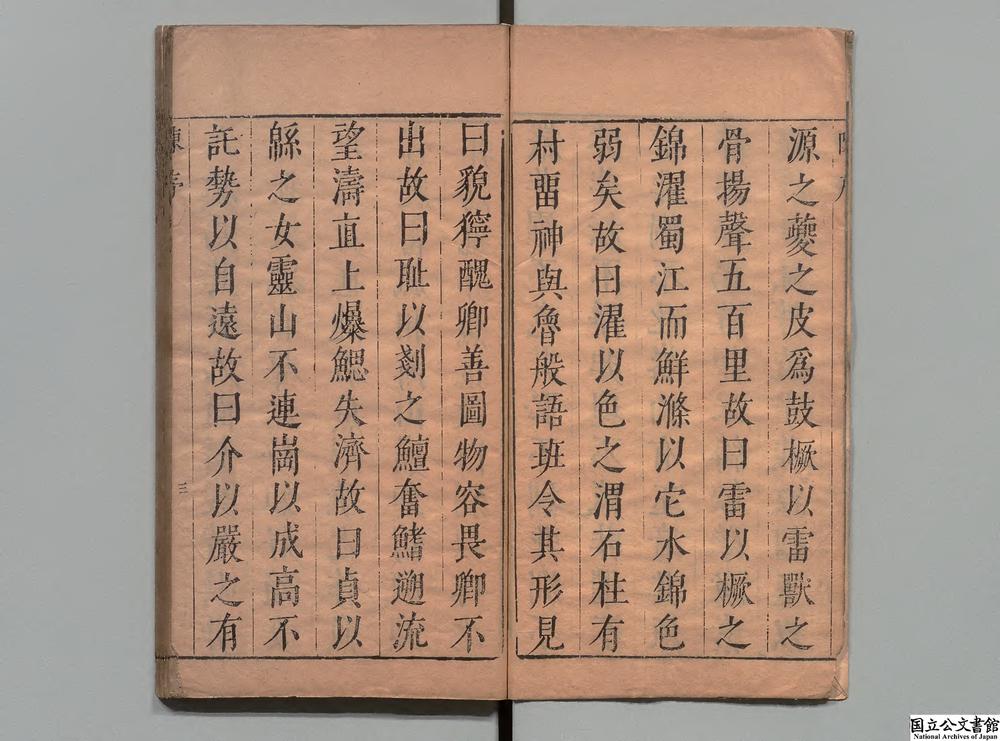 源之夔之皮爲鼓橛以雷獸之
骨揚聲五百里故曰雷以橛之
錦濯蜀江而鮮滌以它水錦色
弱矣故曰濯以色之渭石柱有
村畱神與魯般語班令其形見
曰貌獰醜卿善圖物容畏卿不
出故曰耻以剗之鱣奮鰭遡流
望濤直上爆鰓失濟故曰貞以
緜之女靈山不連崗以成高不
託勢以自遠故曰介以嚴之有
陳序
三
国立公文書館
National Archives of Japan